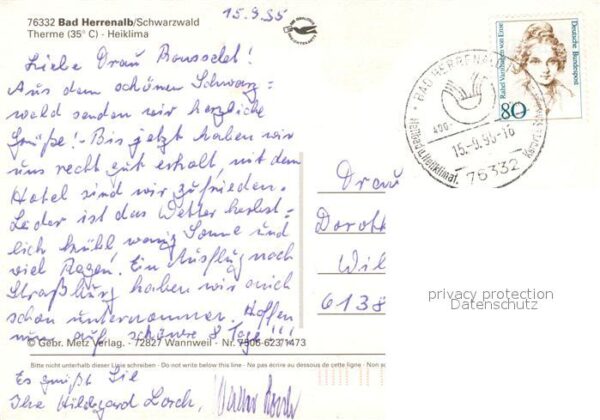 15.9.95
76332 Bad Herrenalb/Schwarzwald
Therme (35° C) - Heiklima
Liebe Frau Bousselot!
Aus dem schönen Schwarz=
wald senden wir herzliche
Grüße! - Bis jetzt haben wir
uns recht gut erholt, mit dem
Hotel sind wir zufrieden.
Leider ist das Wetter herbst=
lich kühl wenig Sonne und
viel Regen. Ein Ausflug nach
Straßburg haben wir auch
schon unternommen. Hoffen
nun auf schöne 8 Tage!!!
© Gebr. Metz Verlag. - 72827 Wannweil - Nr. 7506-623 1473
Bitte nicht unterhalb dieser Linie schreiben - Do not write below this line - Ne pas écrire au dessous de cette ligne - Non
Es grüßt Sie
Ihre Hildegard Lorch,
Deutsche Bundespost
Rahel Varnhagen von Ense
80
BAD HERRENALB
15.-9.95-16
76332
Frau
Doroth
Wil
6138
privacy protection
Datenschutz